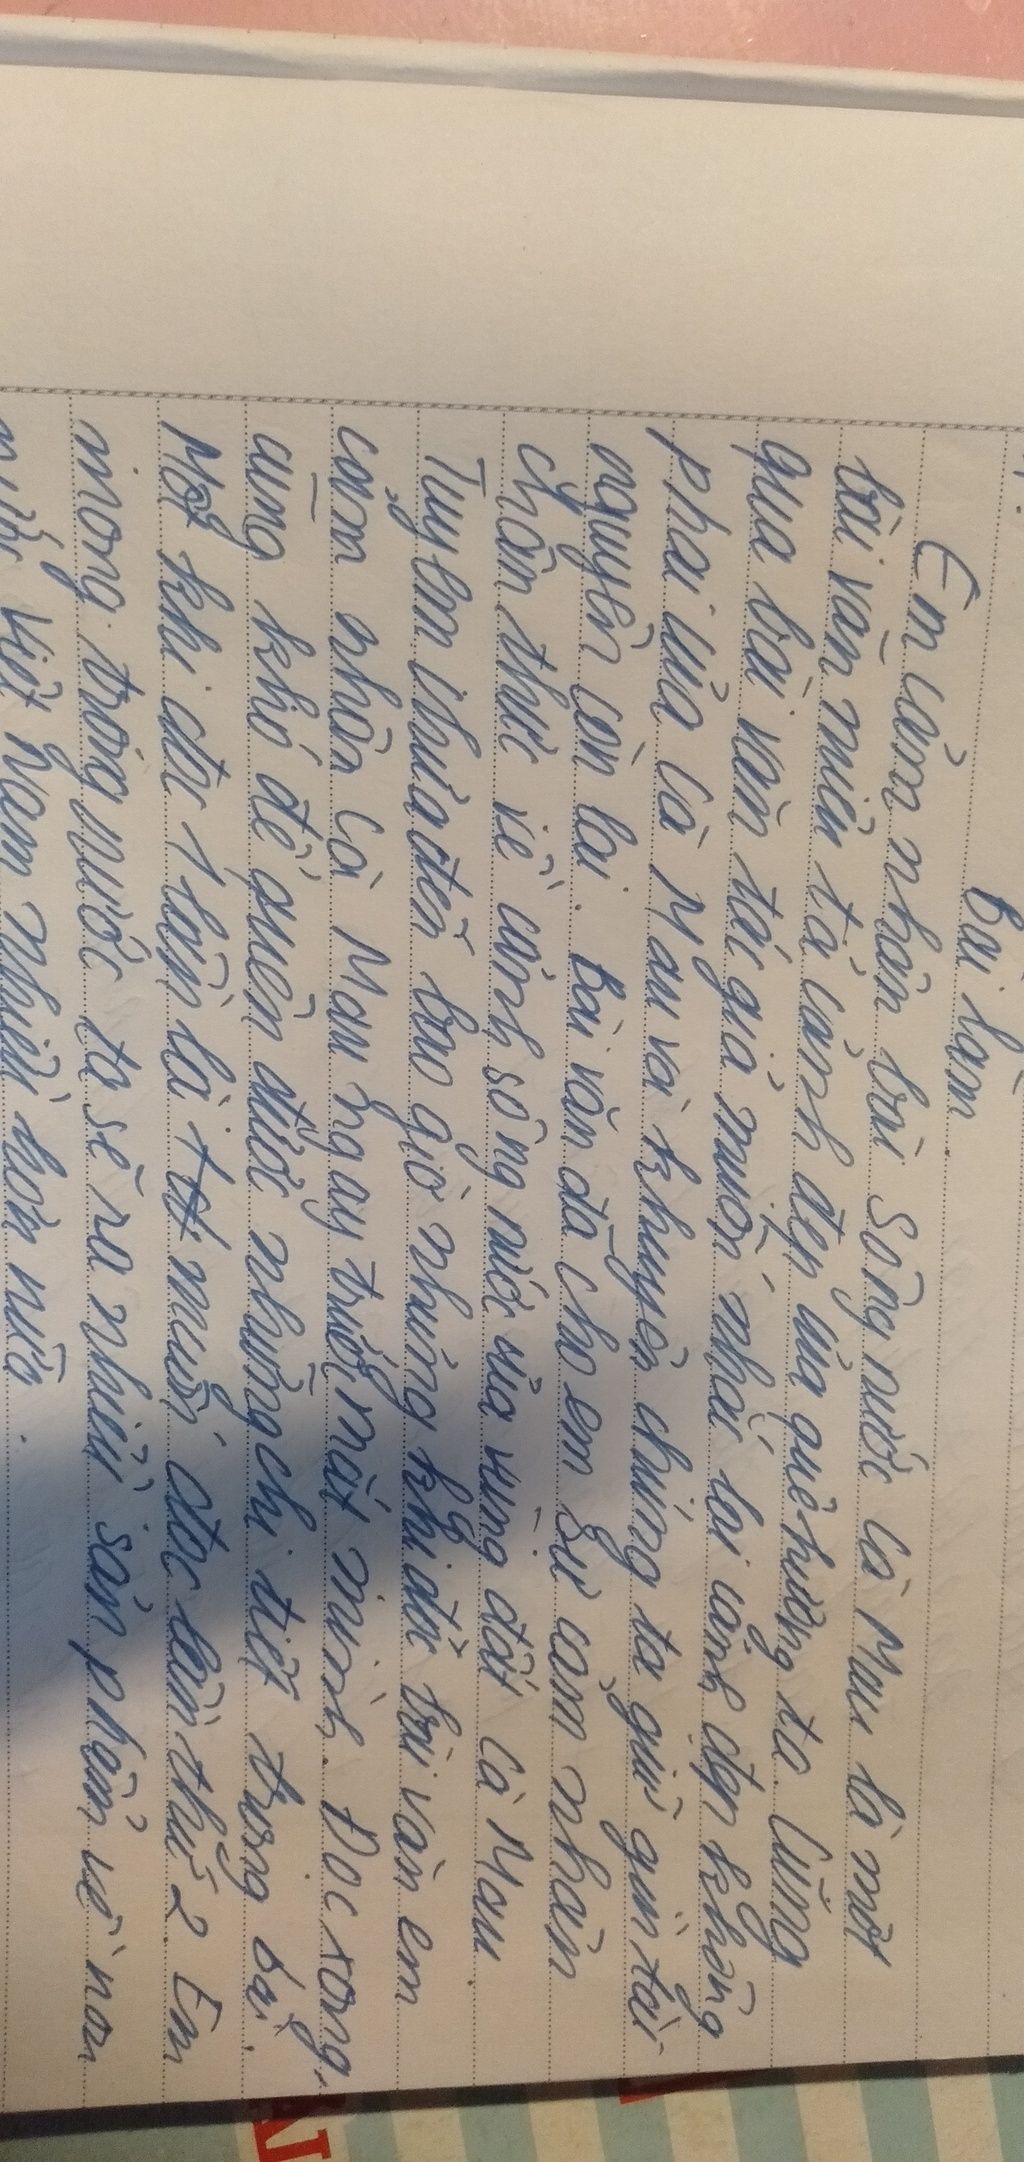 Bài làm
Em cảm nhận bài Sông nước Cà Mau là một
bài văn miêu tả cảnh đẹp của quê hương ta. Cũng
qua bài văn tác giả muốn nhắc lại cảnh đẹp không
phai của Cà Mau và khuyên chúng ta giữ gìn tài
nguyên còn lại. Bài văn đã cho em sự cảm nhận
chân thực về cảnh sông nước của vùng đất Cà Mau.
Tuy em chưa đến bao giờ nhưng khi đọc bài văn em
cảm nhận Cà Mau ngay trước mắt mình. Đọc xong,
cũng khó để quên được những chi tiết trong bài.
Một khi đọc 1 lần là muốn đọc lần thứ 2. Em
mong trong nước ta sẽ ra nhiều sản phẩm về non
nước Việt Nam nhiều hơn nữa.
N